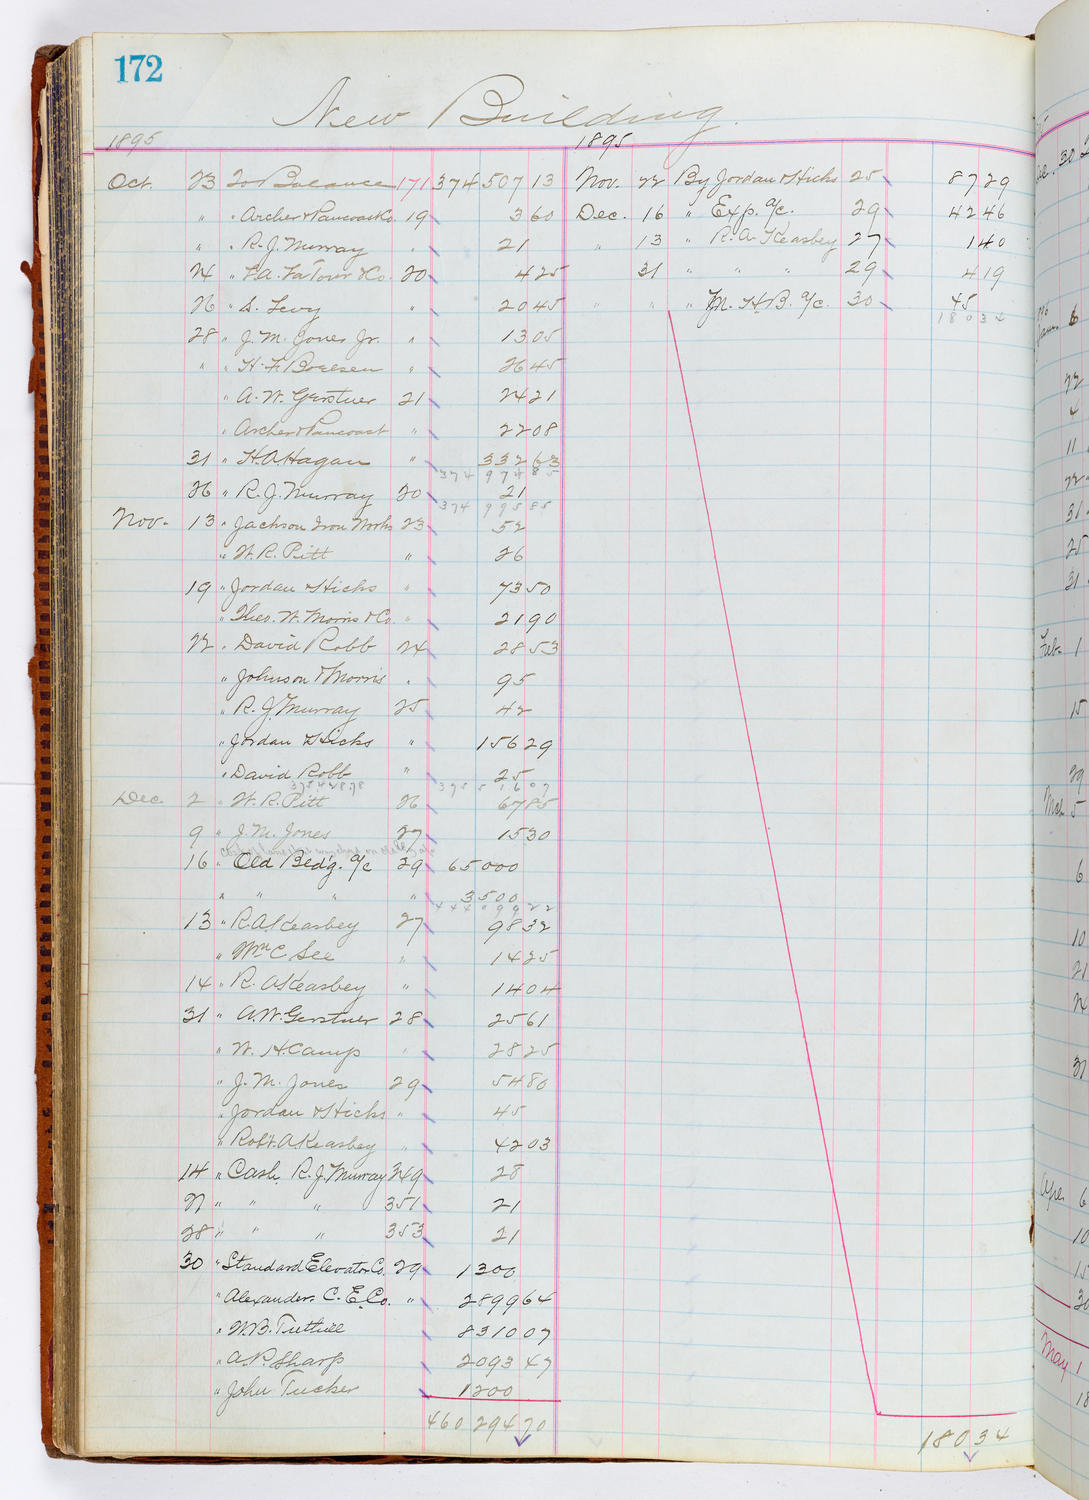 172
New Building.
1895
Oct. 23 To Balance 171 374 507 13
" " Archer & Pancoast Co. 19 3 60
" " R. J. Murray " 21
24 " F. A. La Tour & Co. 20 4 25
26 " S. Levy " 20 45
28 " J. M. Jones Jr. " 13 05
" " H. F. Boelsen " 26 45
" A. W. Gerstner 21 24 21
" Archer & Pancoast " 22 08
31 " H. A. Hagan " 332 63
374 974 85
26 " R. J. Murray 20 21
374 995 85
Nov. 13 " Jackson Iron Works 23 52
" W. R. Pitt " 26
19 " Jordan & Hicks " 73 50
" Theo. W. Morris & Co. " 21 90
22 " David Robb 24 28 53
" Johnson & Morris " 95
" R. J. Murray 25 42
" Jordan & Hicks " 156 29
" David Robb " 25
Dec. 2 " W. R. Pitt 26 67 85
9 " J. M. Jones 27 15 30
16 " Old Bld'g. a/c 29 65 000
" " " " 3500
13 " R. A. Keasbey 27 98 32
" Wm C. See " 14 25
14 " R. A. Keasbey " 14 04
31 " A. W. Gerstner 28 25 61
" W. H. Camp " 28 25
" J. M. Jones 29 54 80
" Jordan & Hicks " 45
" Robt. A. Keasbey " 42 03
14 " Cash, R. J. Murray 349 28
27 " " " 351 21
28 " " " 353 21
30 " Standard Elevator Co. 29 1 300
" Alexander C. E. Co. " 2 899 64
" W. B. Tuthill 8 310 07
" A. P. Sharp 2 093 47
" John Tucker 1 200
460 294 70
1895
Nov. 22 By Jordan & Hicks 25 87 29
Dec. 16 " Exp. a/c. 29 42 46
" 13 " R. A. Keasbey 27 1 40
31 " " " 29 4 19
" " " M. H. B. a/c. 30 45
180 34
180 34